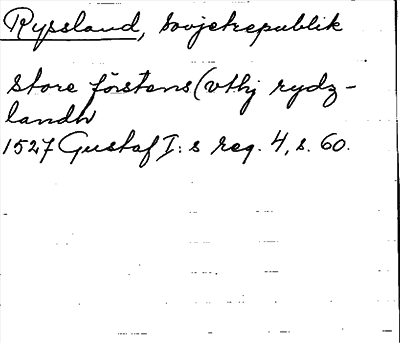 Ryssland, Sovjetrepublik
store förstens (vthj rydz-
landh
1527 Gustaf I:s reg. 4, s. 60.